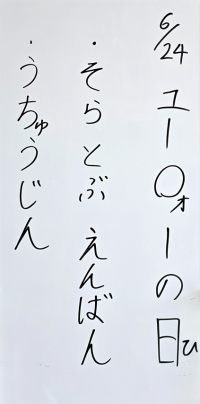 6/24 ユーフォーの日ひ
・そらとぶ えんばん
・うちゅうじん